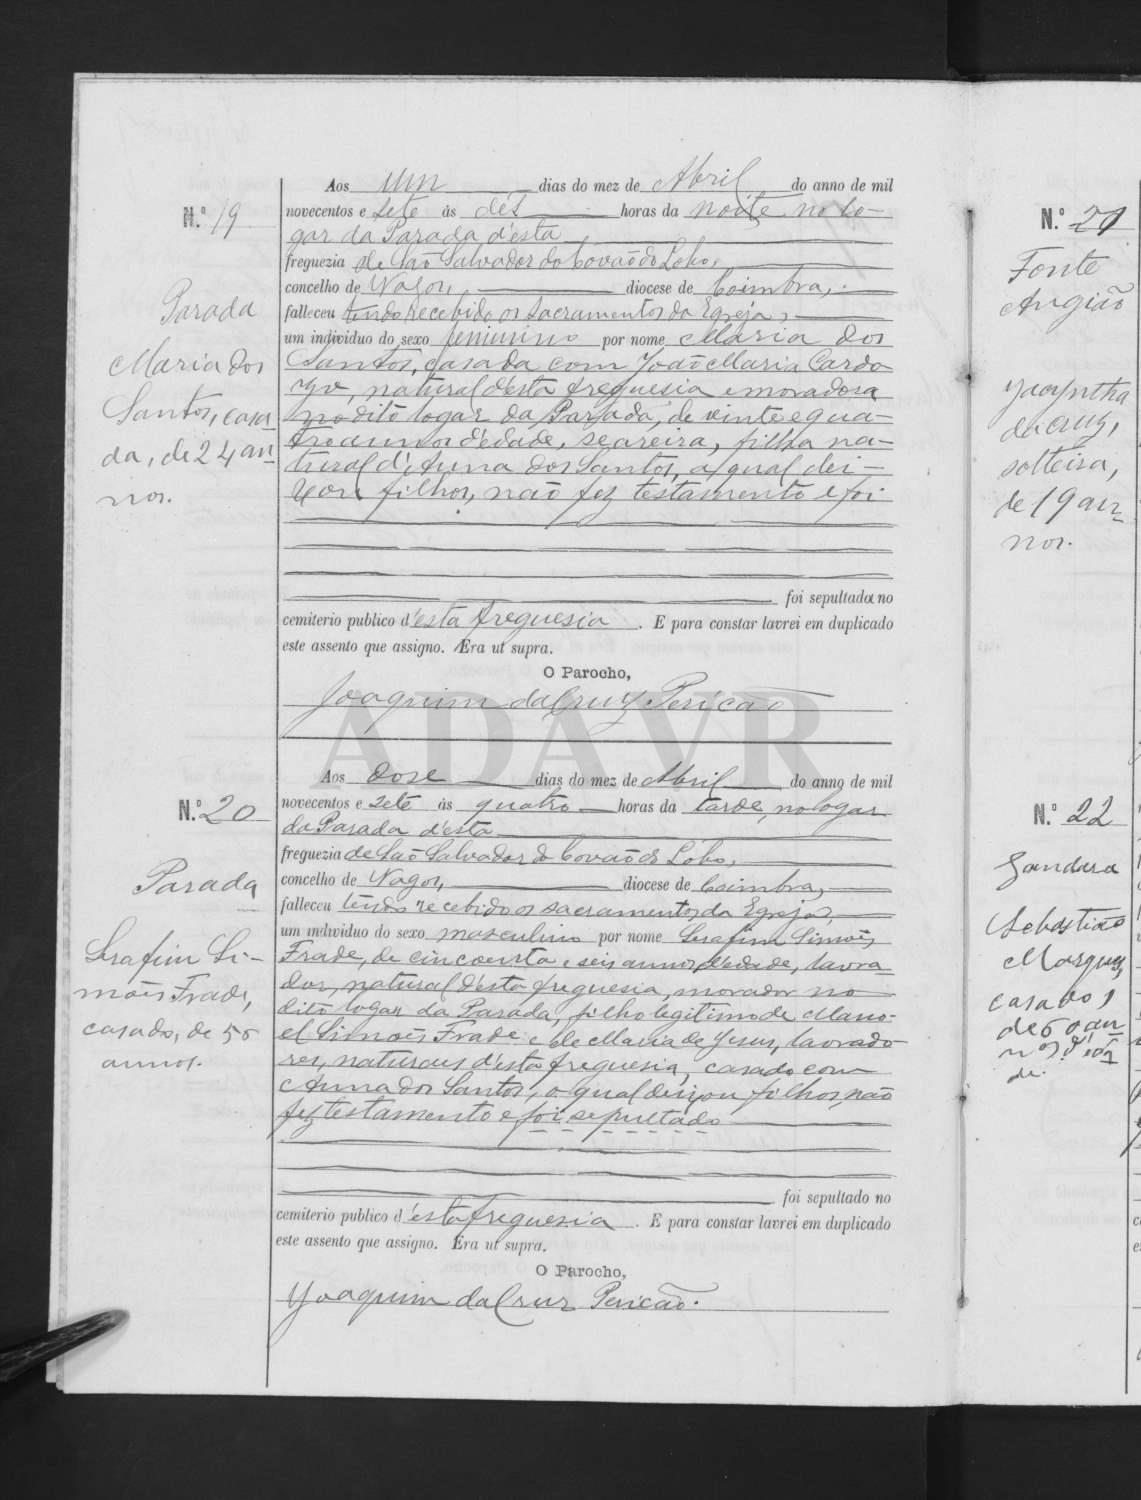 Aos um dias do mez de Abril do anno de mil
N.º 19
novecentos e sete ás dés horas da noite no lo-
gar da Parada d'esta
freguezia de São Salvador do Covão do Lobo,
concelho de Vagos, diocese de Coimbra,
falleceu tendo recebido os sacramentos da Egreja,
um individuo do sexo feminino por nome Maria dos
Santos, casada com João Maria Cardo
zo, natural d'esta freguesia e moradora
no dito logar da Parada, de vinte e qua-
tro annos d'edade, seareira, filha na-
tural d'Anna dos Santos, a qual dei-
xou filhos, não fez testamento e foi
foi sepultada no
cemiterio publico d'esta freguesia. E para constar lavrei em duplicado
este assento que assigno. Era ut supra.
O Parocho,
Joaquim da Cruz Pericão
Parada
Maria dos
Santos, casa
da, de 24 an
nos.
ADAVR
Aos dose dias do mez de Abril do anno de mil
N.º 20
novecentos e sete ás quatro horas da tarde, no logar
da Parada d'esta
freguezia de São Salvador do Covão do Lobo,
concelho de Vagos, diocese de Coimbra,
falleceu tendo recebido os sacramentos da Egreja,
um individuo do sexo masculino por nome Serafim Simões
Frade, de cincoenta e seis annos d'edade, lavra
dor, natural d'esta freguesia, morador no
dito logar da Parada, filho legitimo de Mano-
el Simões Frade e de Maria de Jesus, lavrado
res, naturaes d'esta freguesia, casado com
Anna dos Santos, o qual deixou filhos, não
fez testamento e foi sepultado
foi sepultado no
cemiterio publico d'esta freguesia. E para constar lavrei em duplicado
este assento que assigno. Era ut supra.
O Parocho,
Joaquim da Cruz Pericão.
Parada
Serafim Si-
mões Frade,
casado, de 56
annos.
N.º 21
Fonte
Angião
Jacyntha
da Cruz,
solteira,
de 19 an
nos.
N.º 22
Gandara
Sebastião
Marques,
casado,
de 60 an
nos d'eda
de.